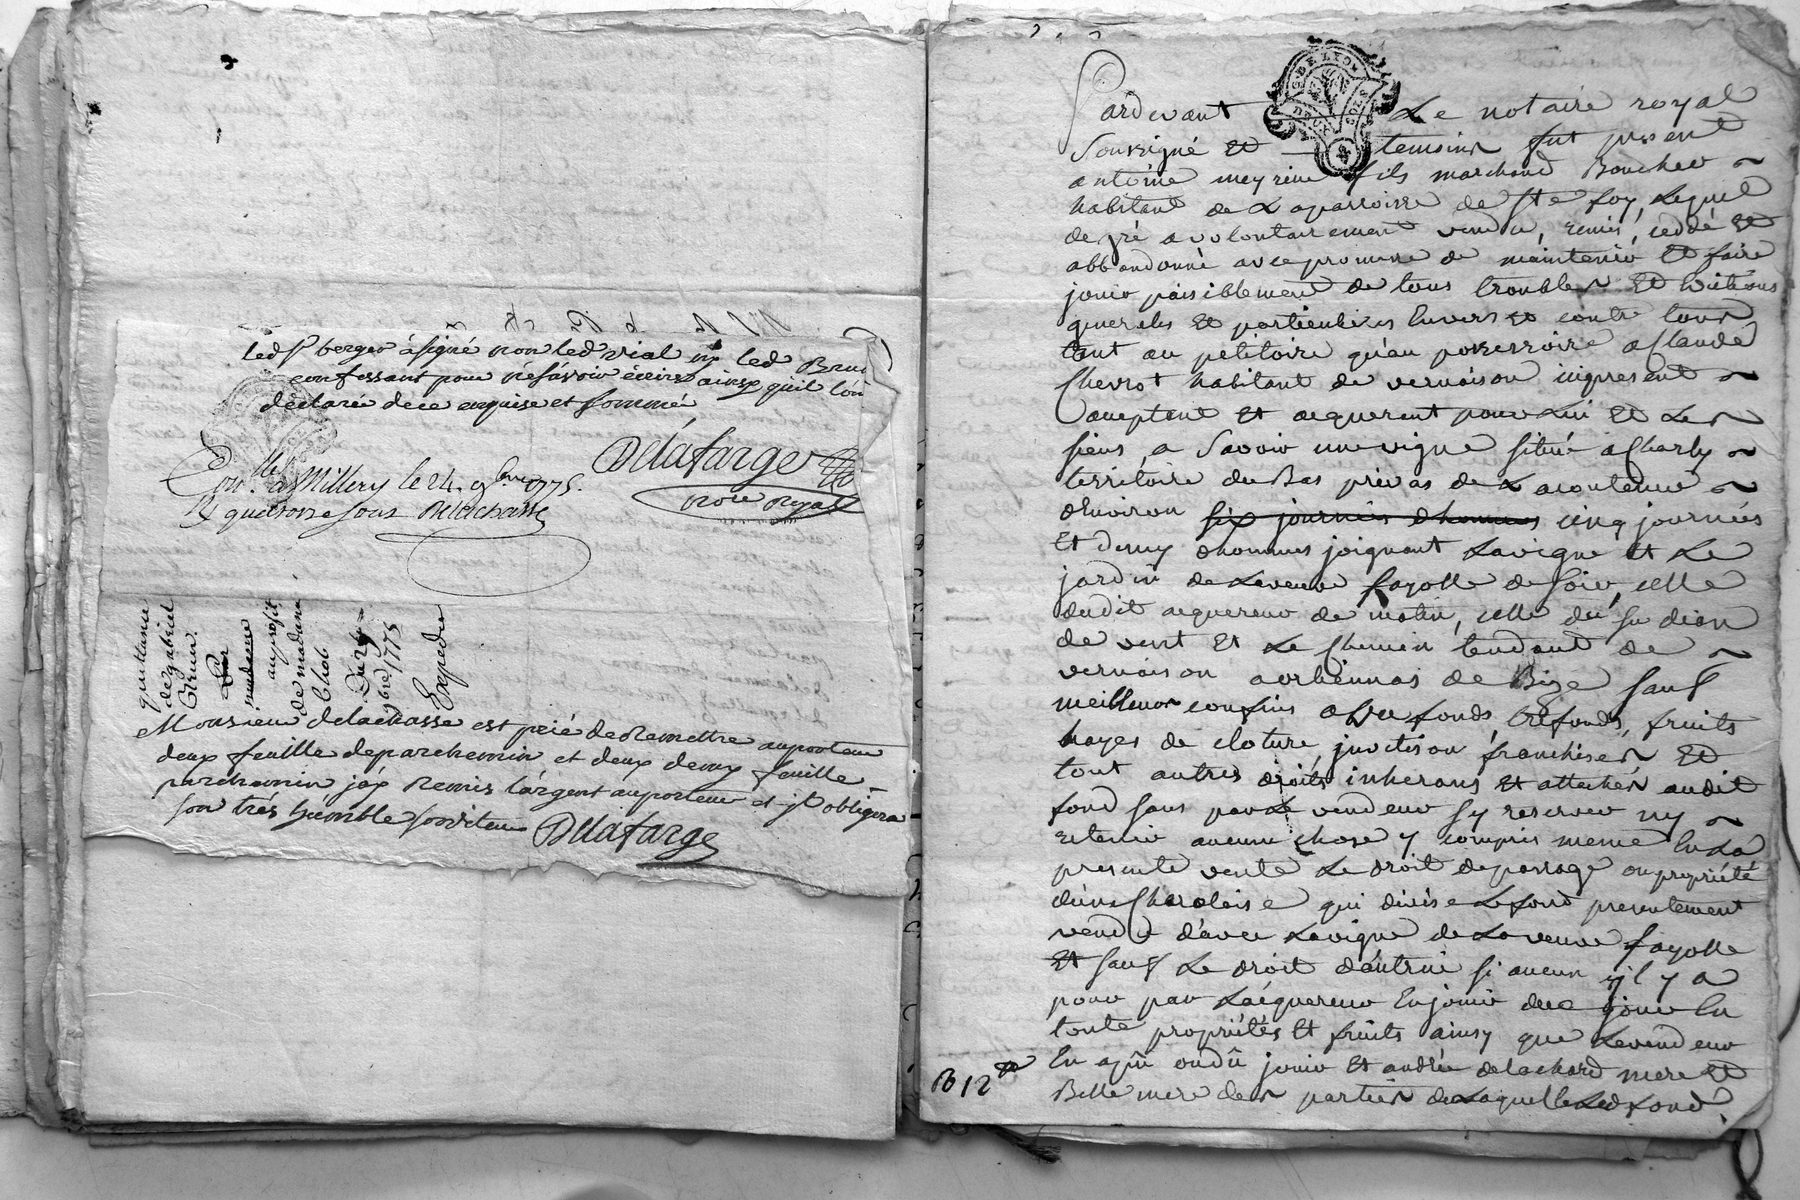 led Sr berger à signé non led vial ny led Brun
confessant pour ne sávoir écire ainsy qu'il l'on
declarée de ce enquise et sommé
Delafarge
Nore Royal
Conllé à Millery le 24. 9bre 1775.
R quatorze sous Delachasse
quittance
de gabriel
au profit
de madame
Chol
Du 29
9bre 1775
Expedié
Monsieur delachasse est prié de Remettre au porteur
deux feuille de parchemin et deux demy feuille
parchemin jay Remis l'árgent au porteur et jl obligera
son trés humble serviteur Delafarge
Pardevant Le notaire royal
Soussigné et temoins fut present
antoine meyrieu fils marchand Boucher
habitant de La parroisse de Ste foy, Lequel
de gré a volontairement vendu, remis, ceddé et
abbandonné avec promesse de maintenir et faire
jouir paisiblement de tous troubles et evictions
querelles et particuliers Envers et contre tous
tant au petitoire qu'au possessoire a Claude
Chevrot habitant de vernaison icy present
acceptant et acquerant pour Lui et Les
siens, a Savoir une vigne située a Charly
territoire du Bas privas de La contenue
d'Environ six journées d'hommes cinq journées
et demy d'hommes joignant La vigne et Le
jardin de La veuve fayolle de Soir, celle
dudit acquereur de matin, celle du Sr dian
de vent et Le Chemin tendant de
vernaison a orliennas de Bize sauf
meilleurs confins avec fonds, tréfonds, fruits
hayes de cloture, jonction, franchises et
tout autres droits inherans et attachés audit
fond sans par Le vendeur s'y reserver ny
retenir aucune chose y compris meme En La
presente vente Le droit de passage ou propriété
d'une Charoloise qui divise Le fond presentement
vendu d'avec La vigne de La veuve fayolle
Et sauf Le droit d'autrui si aucun y il y a
pour par L'acquereur En jouir
toute propriétés et fruits ainsy que Le vendeur
En a jui ou dû jouir Et andrée delachard mere et
Belle mere des parties de Laquelle Led fond
R 12 s